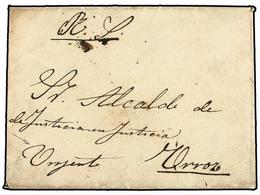 R. S.
Sr. Alcalde de
de Justicia en Justicia
Urgent Urroz